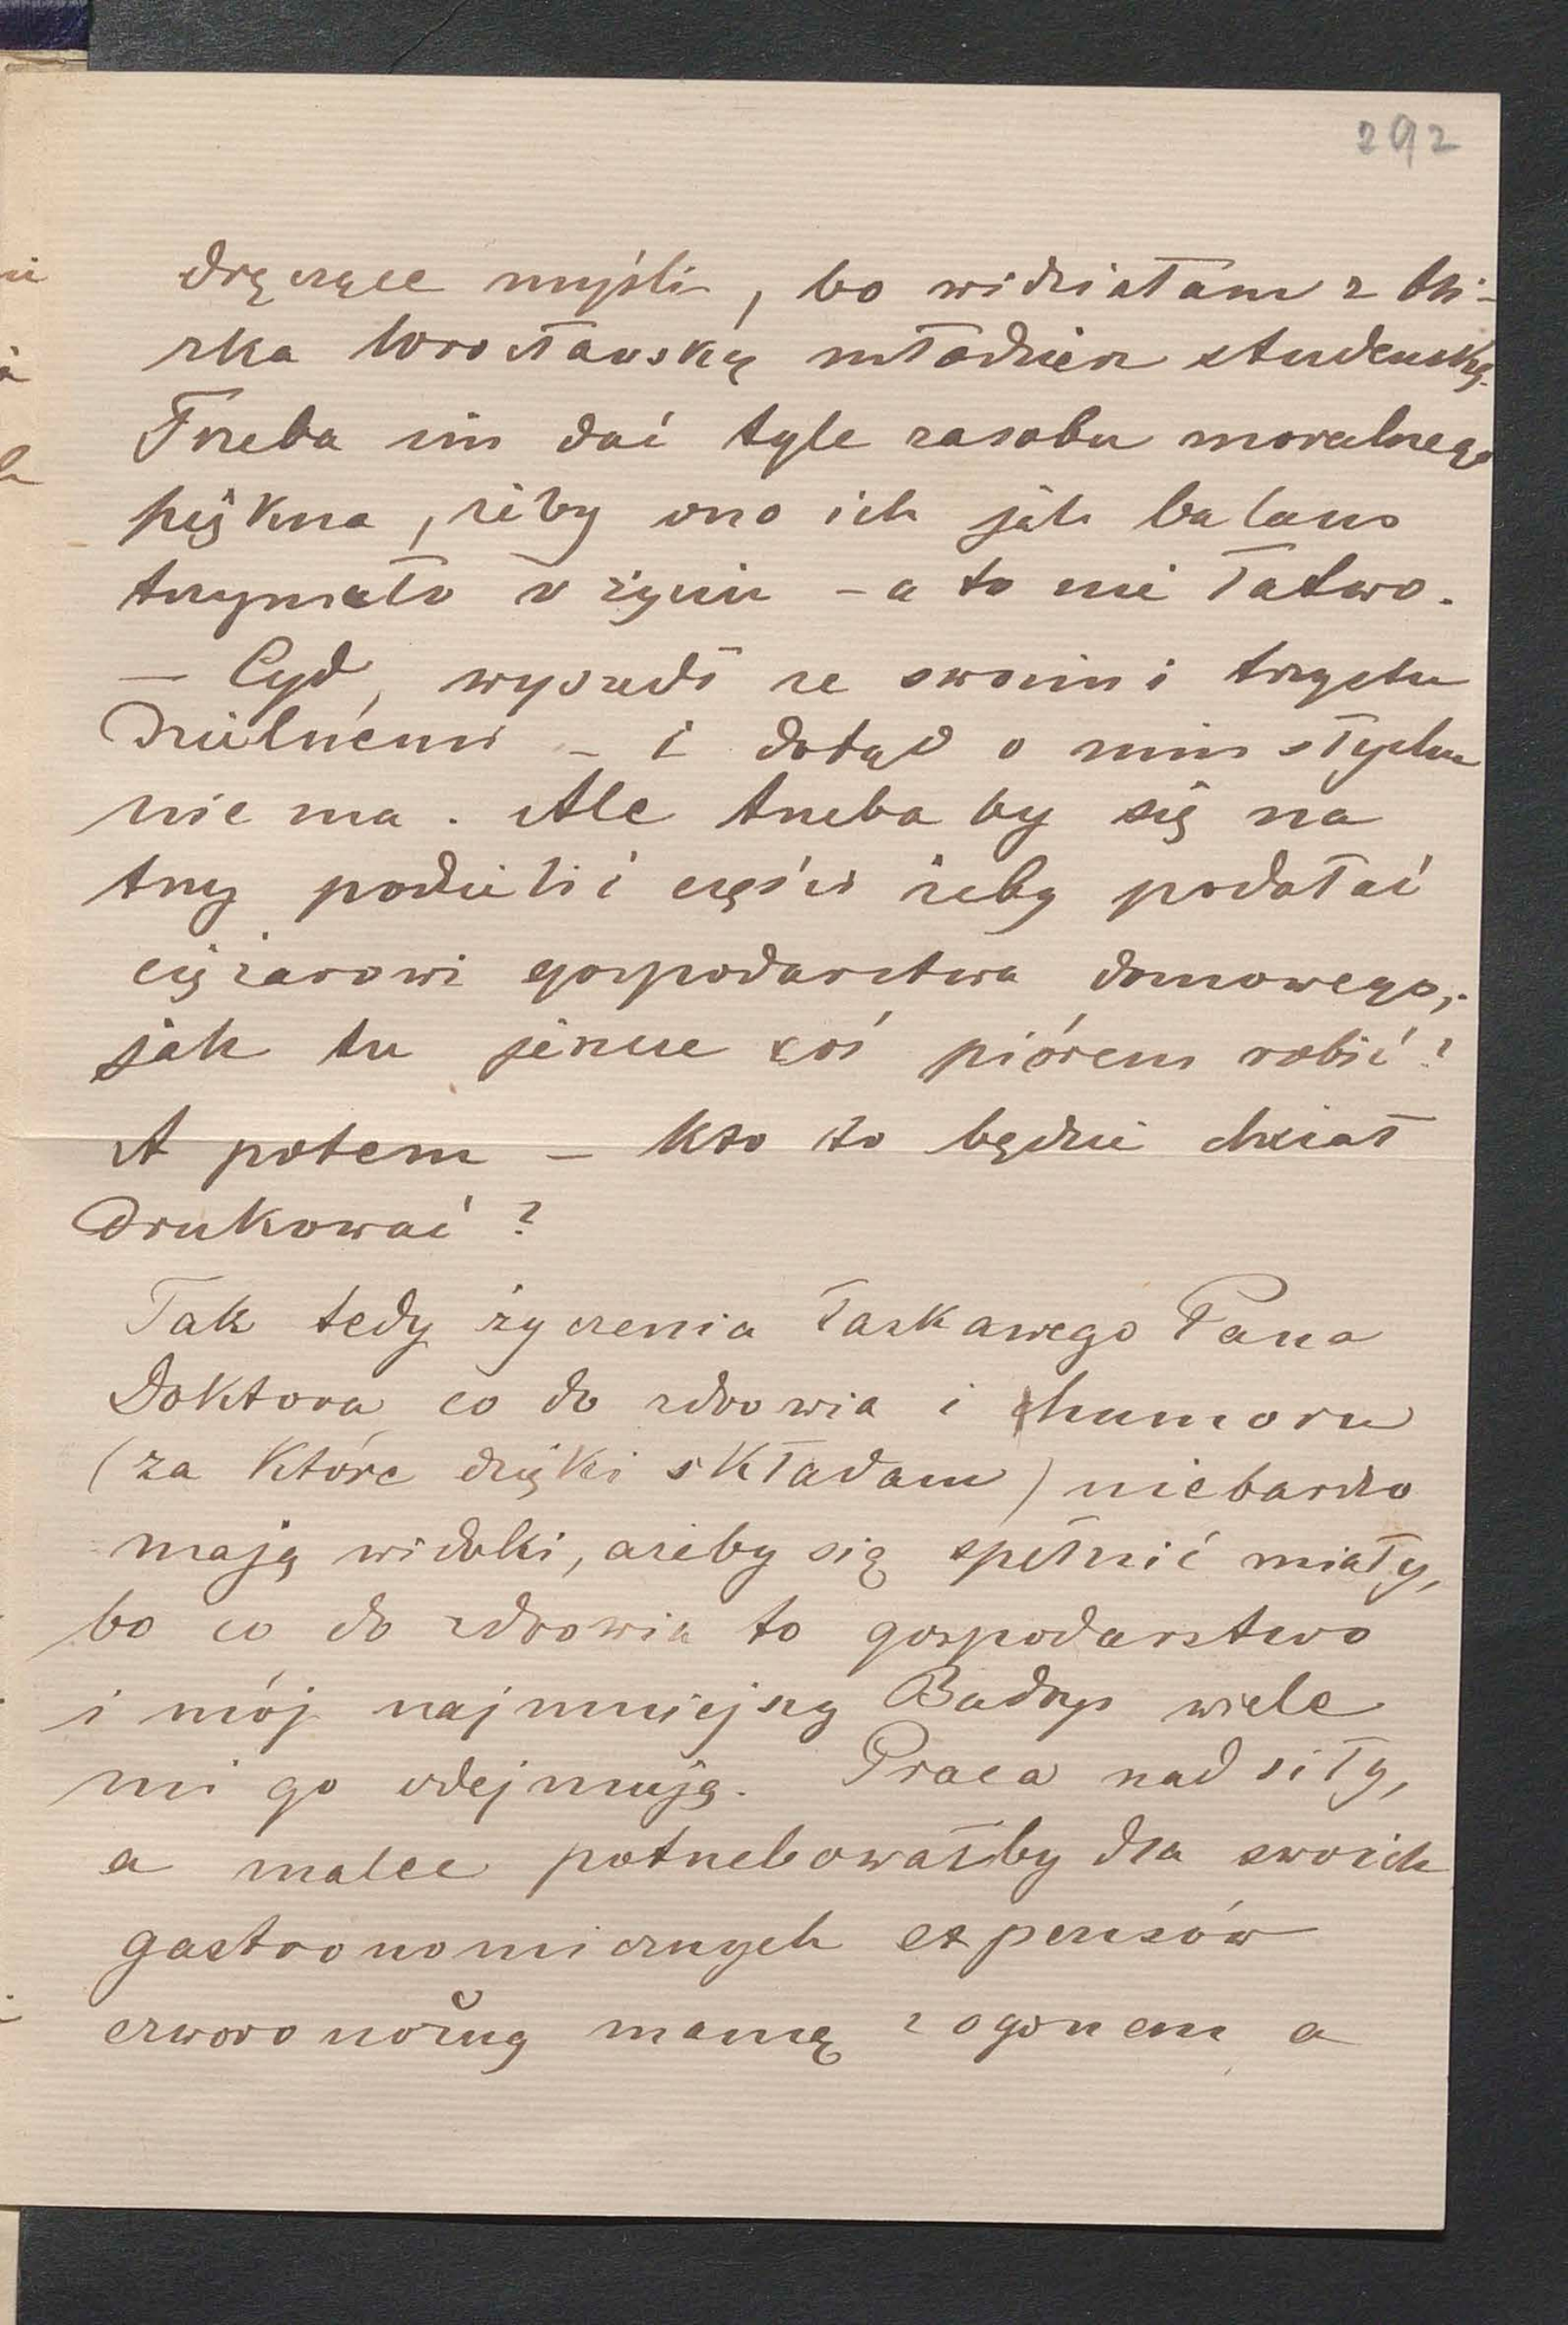 292
dręczące myśli, bo widziałam z bli-
zka Wrocławską młodzież studencką.
Trzeba im dać tyle zasobu moralnego
piękna, żeby ono ich jak balans
trzymało w życiu – a to nie łatwo.
– Cyd, wyszedł ze swoimi trzystu
Dzielnémi – i dotąd o nim słychu
nie ma. Ale trzeba by się na
trzy podzielić części żeby podołać
ciężarowi gospodarstwa domowego,
jak tu jeszcze coś piórem robić?
A potem – kto to będzie chciał
drukować?
Tak tedy życzenia łaskawego Pana
Doktora co do zdrowia i humoru
(za które dzięki składam) niebardzo
mają widoki, ażeby się spełnić miały,
bo co do zdrowia to gospodarstwo
i mój najmniejszy Budrys wiele
mi go odejmują. Praca nad siły,
a malec potrzebowałby dla swoich
gastronomicznych expensów
czworonożną mamę z ogonem a